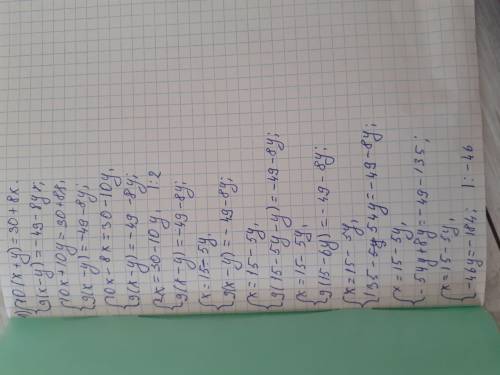 10(x-y)=30+8x.
9(x-y)=-49-8y;
10x+10y=30+8x,
9(x-y)=49-8y;
10x-8x=30-10y,
9(x-y)=-49-8y;
2x=30-10y, |:2
9(x-y)=-49-8y;
x=15-5y,
9(x-y)=-49-8y;
x=15-5y,
9(15-5y-y)=-49-8y;
x=15-5y,
9(15-6y)=-49-8y;
x=15-5y,
135-54y=-49-8y;
x=15-5y,
-54y+8y=-49-135;
x=15-5y,
-46y=-184, |:-46